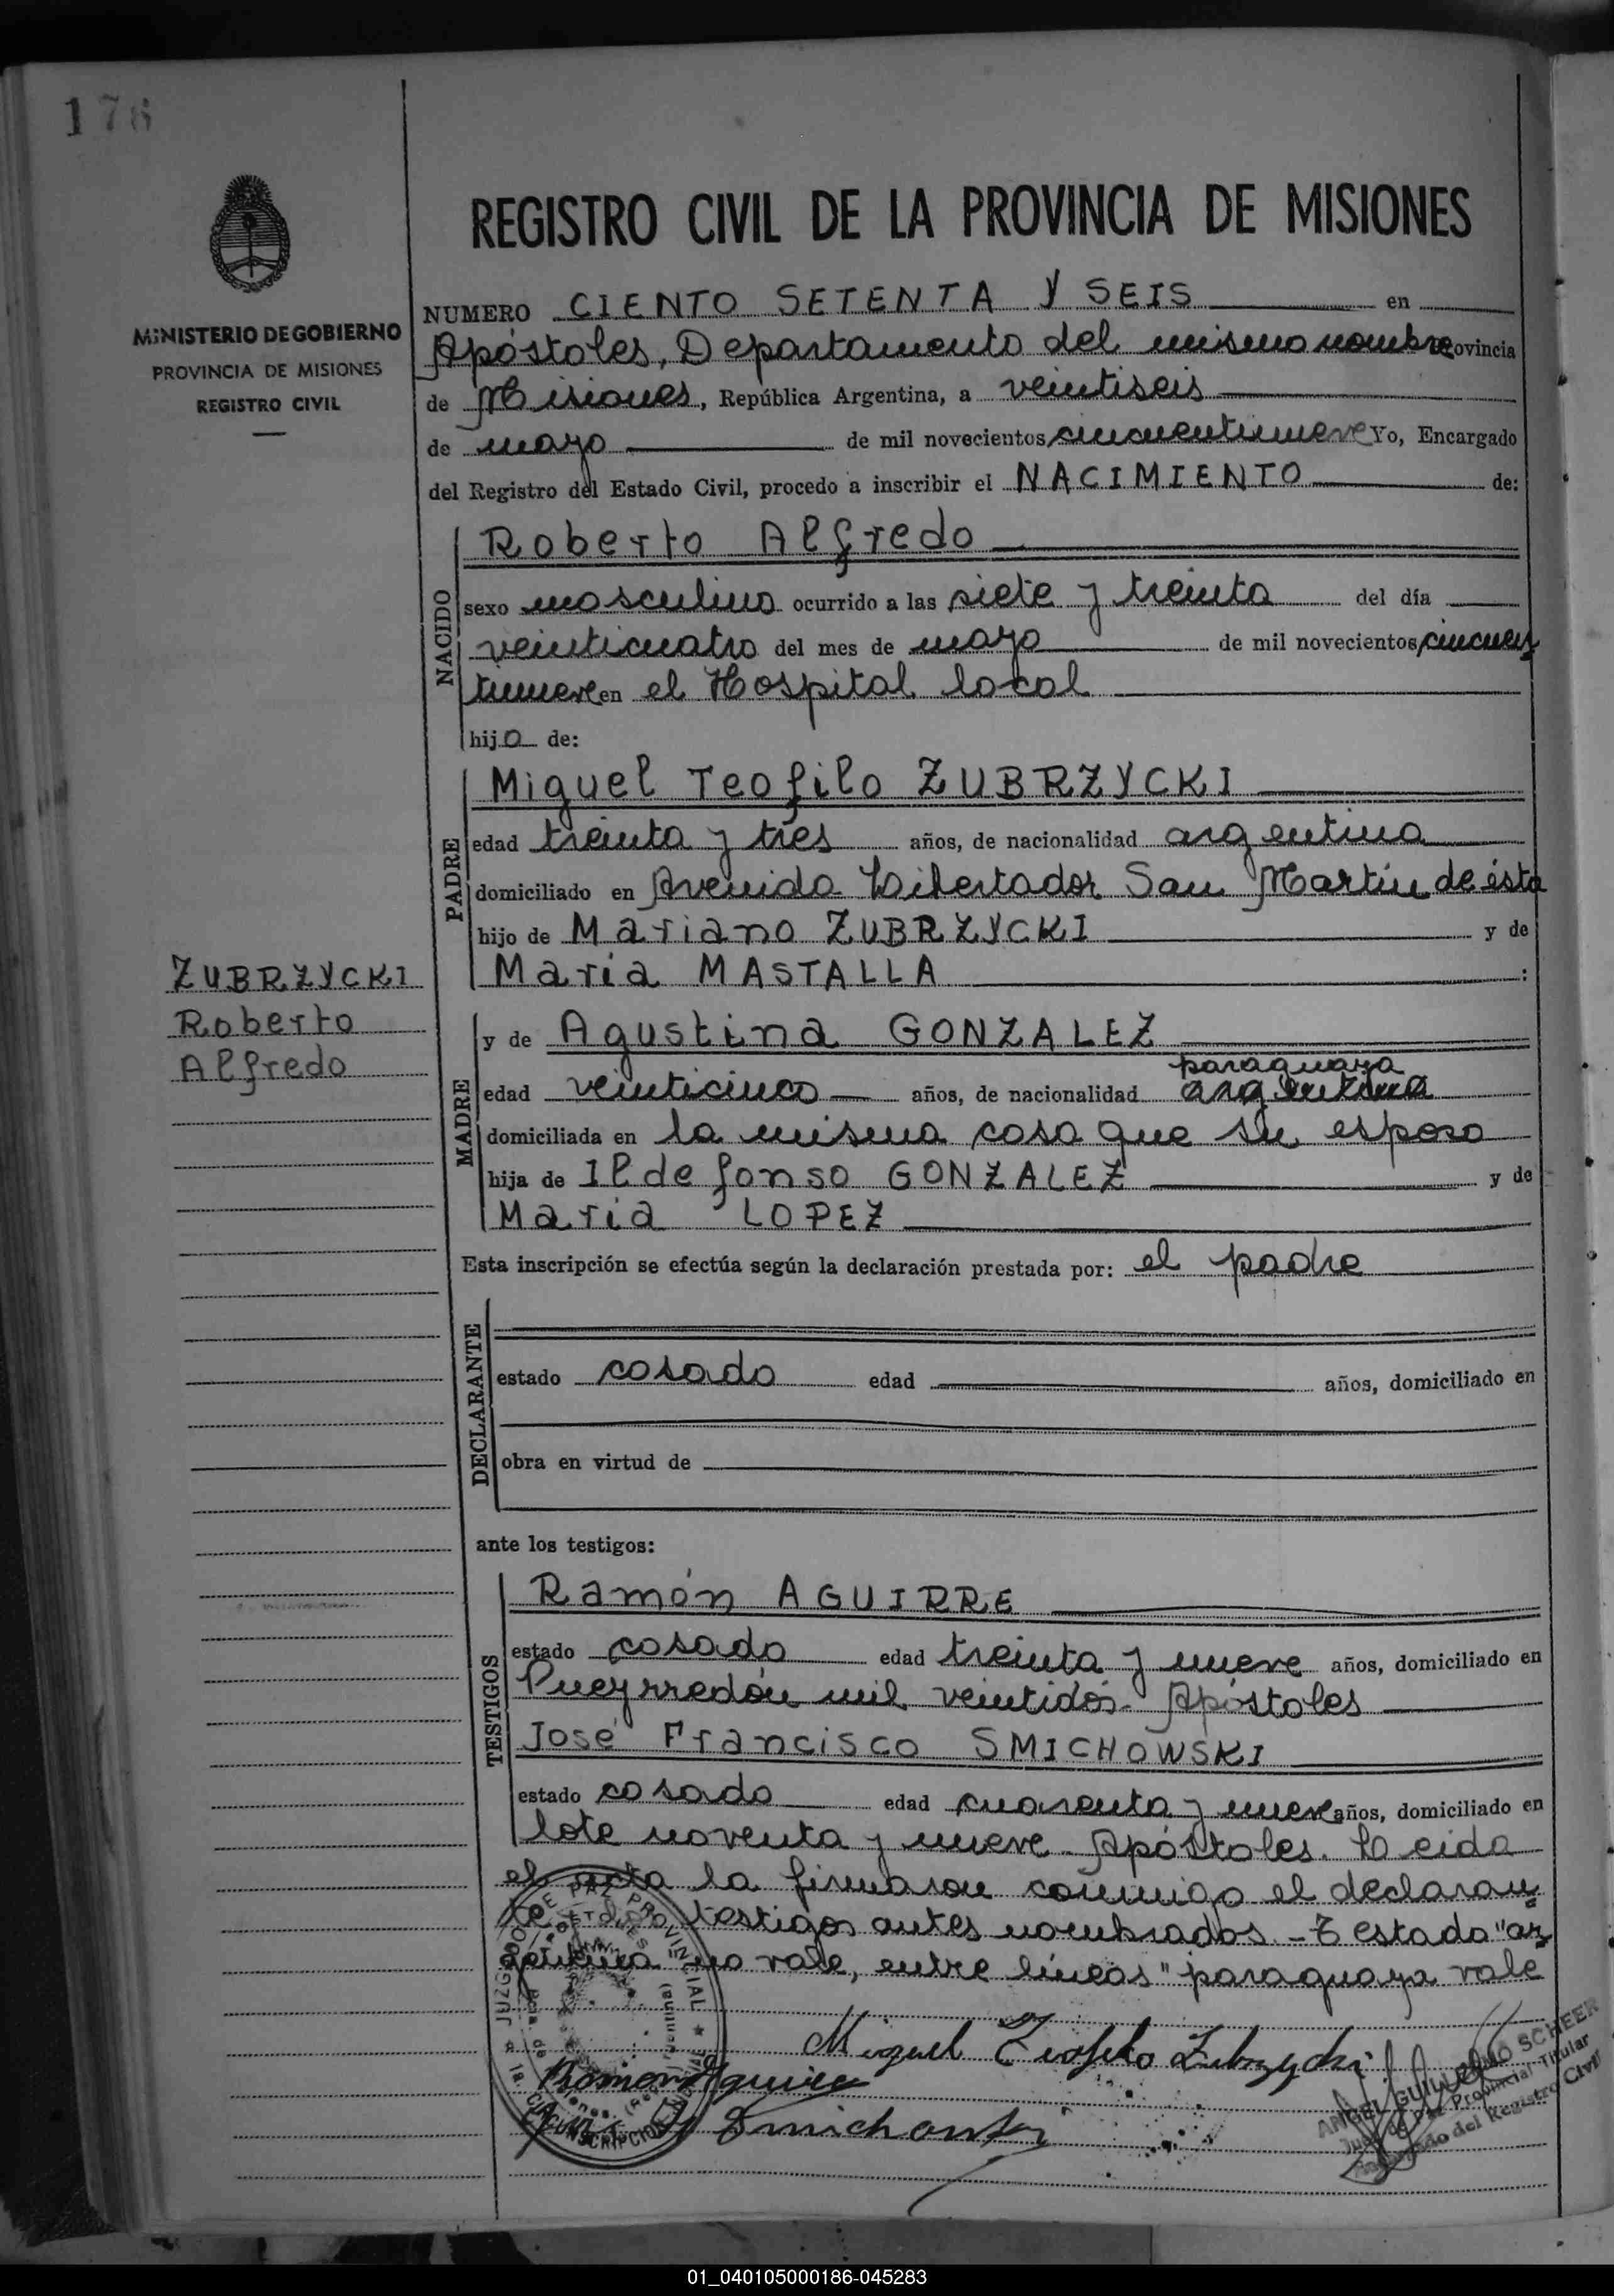 176
MINISTERIO DE GOBIERNO
PROVINCIA DE MISIONES
REGISTRO CIVIL
REGISTRO CIVIL DE LA PROVINCIA DE MISIONES
NUMERO CIENTO SETENTA Y SEIS en
Apóstoles, Departamento del mismo nombre ovincia
de Misiones, República Argentina, a veintiseis
de mayo de mil novecientos cincuentinueve Yo, Encargado
del Registro del Estado Civil, procedo a inscribir el NACIMIENTO de:
NACIDO
Roberto Alfredo
sexo masculino ocurrido a las siete y treinta del día
veinticuatro del mes de mayo de mil novecientos cincuen
tinueve en el Hospital local
hijo de:
PADRE
Miguel Teofilo ZUBRZYCKI
edad treinta y tres años, de nacionalidad argentina
domiciliado en Avenida Libertador San Martín de ésta
hijo de Mariano ZUBRZYCKI y de
María MASTALLA :
ZUBRZYCKI
Roberto
Alfredo
MADRE
y de Agustina GONZALEZ
paraguaya
edad veinticinco años, de nacionalidad argentina
domiciliada en la misma casa que su esposo
hija de Ildefonso GONZALEZ y de
María LOPEZ
Esta inscripción se efectúa según la declaración prestada por: el padre
DECLARANTE
estado casado edad años, domiciliado en
obra en virtud de
ante los testigos:
TESTIGOS
Ramón AGUIRRE
estado casado edad treinta y nueve años, domiciliado en
Pueyrredón mil veintidós - Apóstoles
José Francisco SMICHOWSKI
estado casado edad cuarenta y nueve años, domiciliado en
lote noventa y nueve - Apóstoles. Leida
el acta la firmaron conmigo el declaran
te testigos antes nombrados - Testado "ar
gentina no vale, entre líneas "paraguaya vale
JUZGADO DE PAZ PROVINCIAL
1a. CIRCUNSCRIPCION
Miguel Teofilo Zubrzycki
Ramon Aguirre
Smichowski
ANGEL GUILLERMO SCHEER
Juez de Paz Provincial Titular
Encargado del Registro Civil
01_040105000186-045283